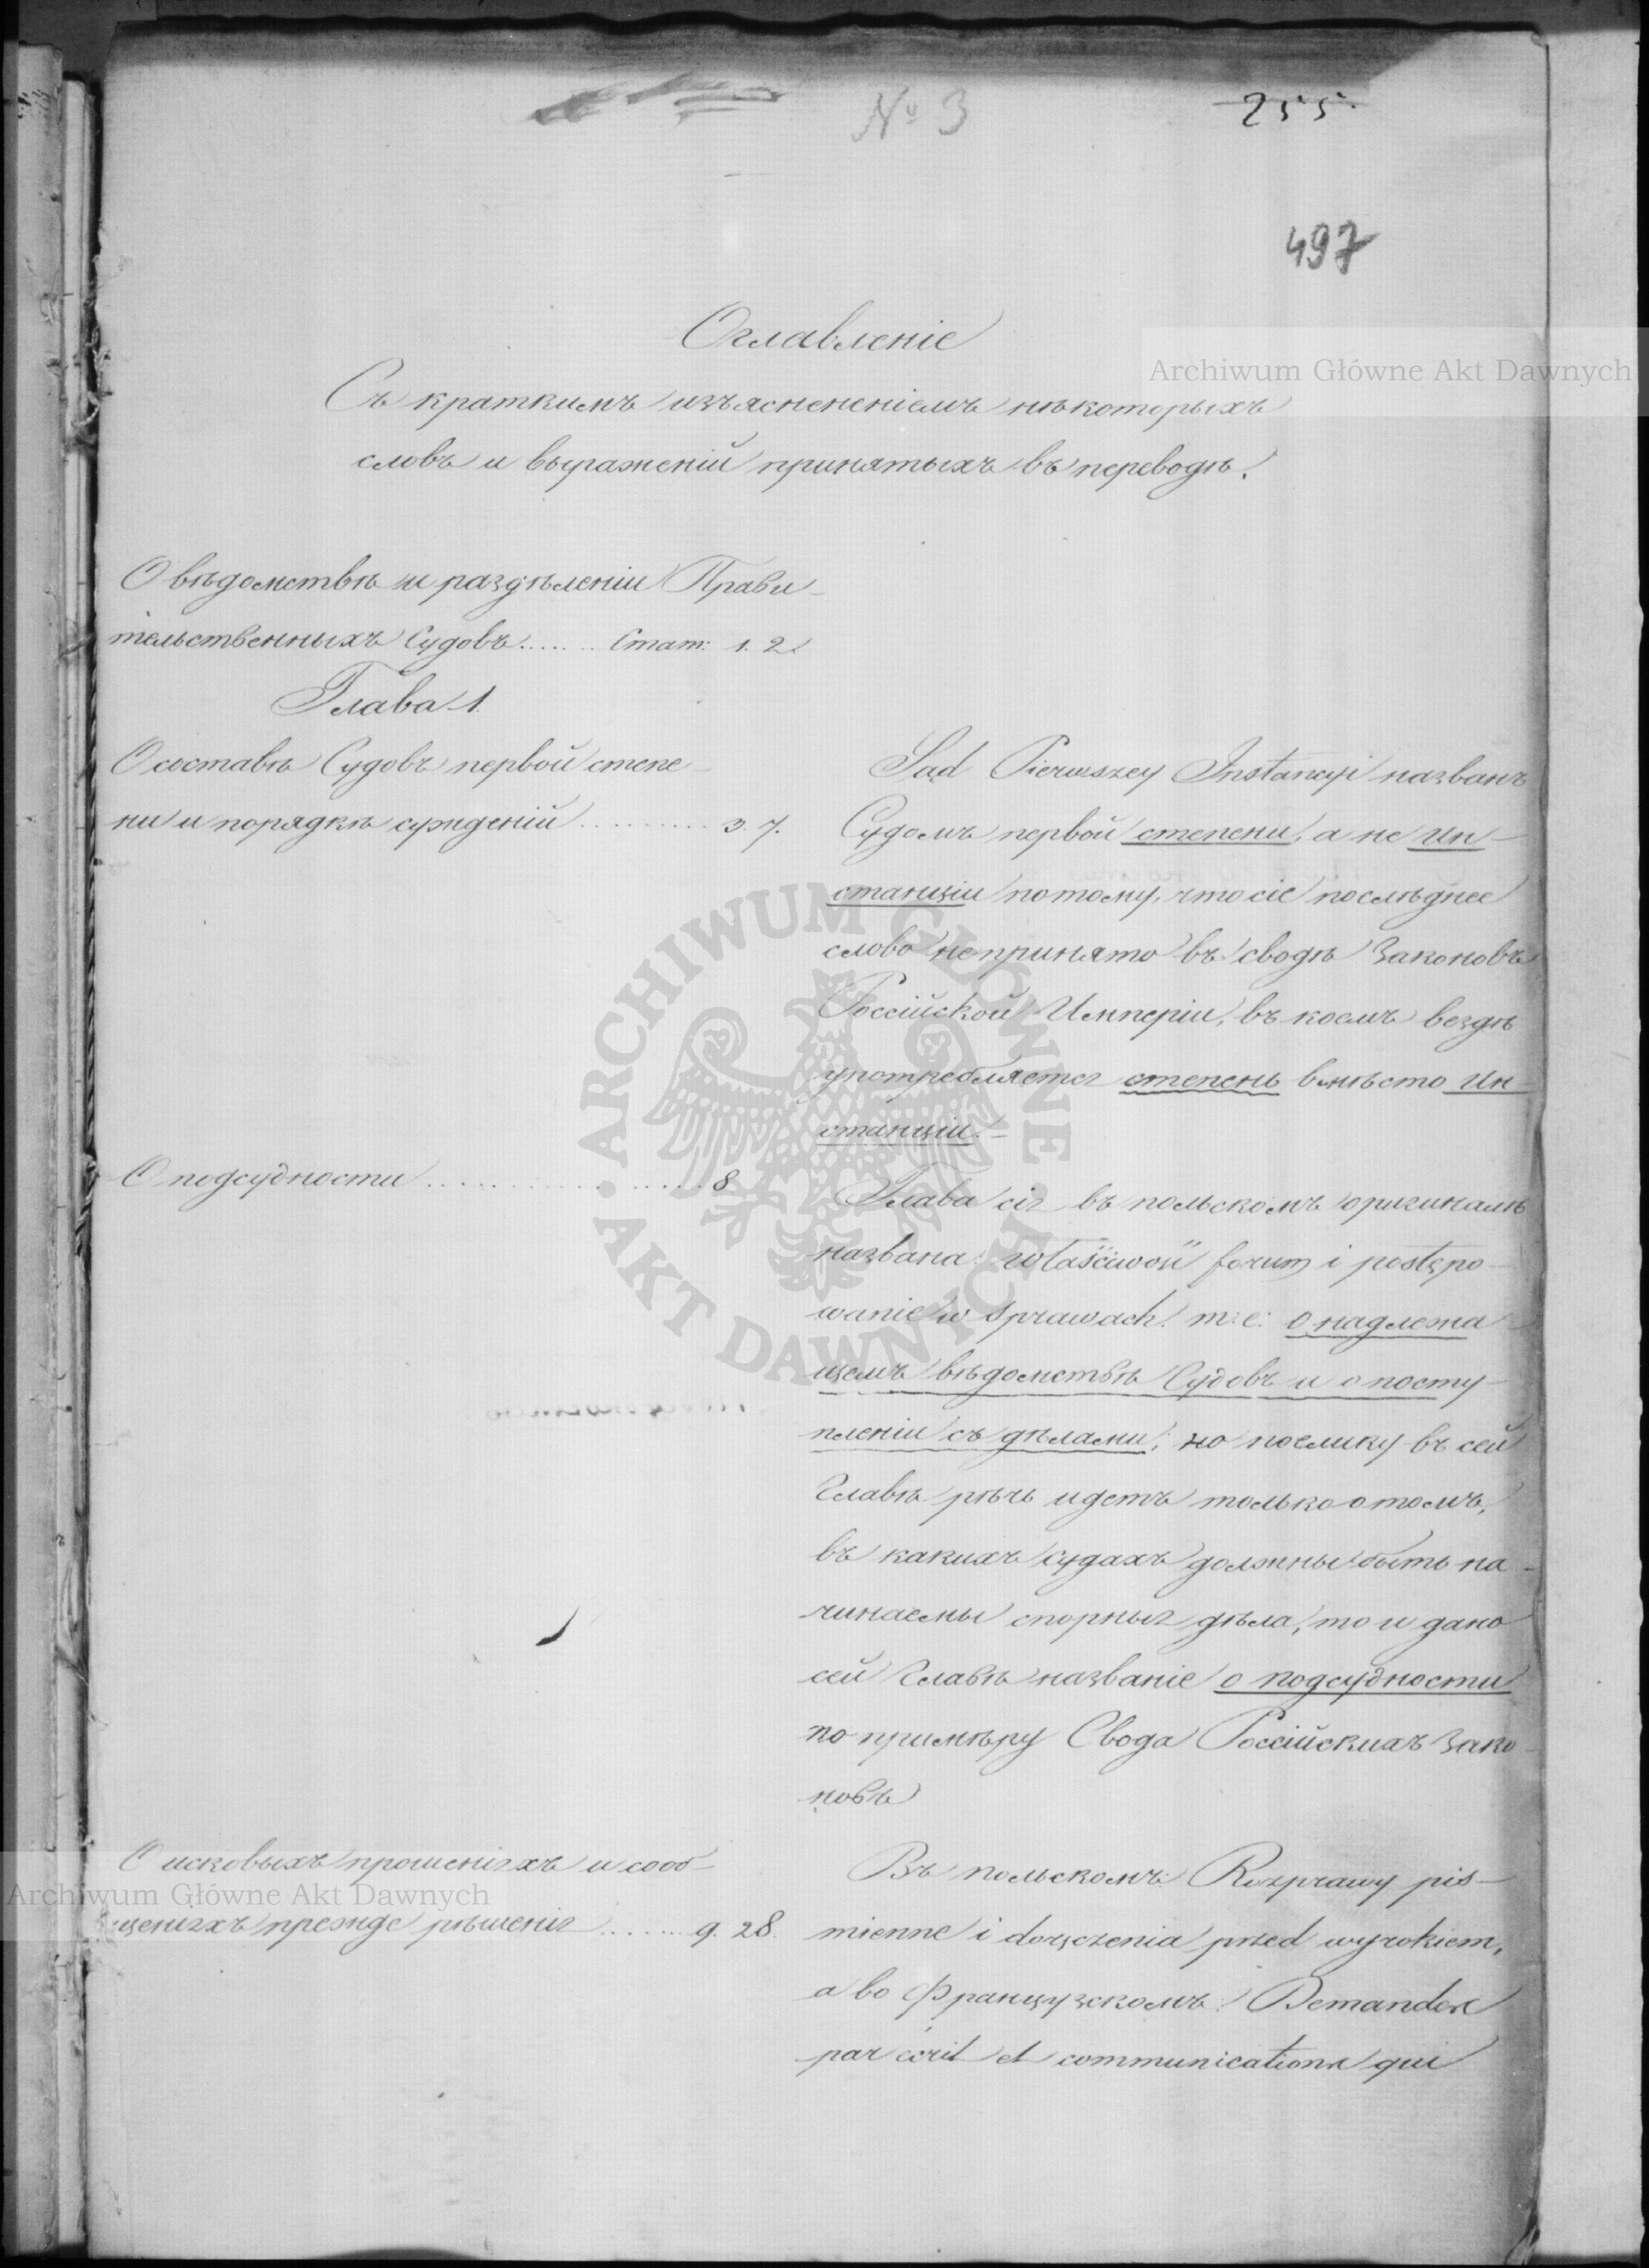 № 3
255.
497
Оглавленіе
Съ краткимъ изъясненіемъ нѣкоторыхъ
словъ и выраженій принятыхъ въ переводѣ.
О вѣдомствѣ и раздѣленіи Прави-
тельственныхъ Судовъ....... Стат: 1. 2.
Глава 1.
О составѣ Судовъ первой степе-
ни и порядкѣ сужденій .......... 3. 7.
О подсудности ................... 8
О исковыхъ прошеніяхъ и сооб-
щеніяхъ прежде рѣшенія ....... 9. 28.
Sąd Pierwszey Instancyi названъ
Судомъ первой степени, а не ин-
станціи потому, что сіе послѣднее
слово непринято въ сводѣ Законовъ
Россійской Имперіи, въ коемъ вездѣ
употребляется степень вмѣсто ин-
станціи.=
Глава сія въ польскомъ оригиналѣ
названа: właściwość forum i postępo-
wanie w sprawach. т: е: о надлежа-
щемъ вѣдомствѣ Судовъ и о посту-
пленіи съ дѣлами; но поелику въ сей
Главѣ рѣчь идетъ только о томъ,
въ какихъ судахъ должны быть на-
чинаемы спорныя дѣла, то и дано
сей Главѣ названіе о подсудности
по примѣру Свода Россійскихъ Зако-
новъ
Въ польскомъ: Rozprawy piś-
mienne i doręczenia przed wyrokiem,
а во Французскомъ: Demandes
par écrit et communications qui
Archiwum Główne Akt Dawnych
ARCHIWUM GŁÓWNE • AKT DAWNYCH •
Archiwum Główne Akt Dawnych